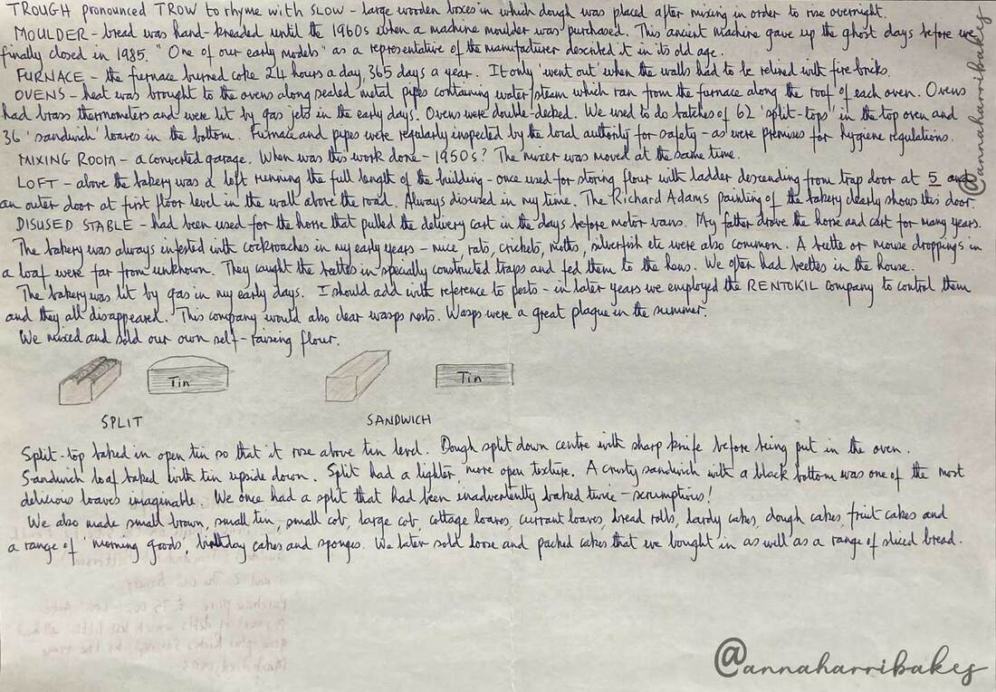 TROUGH pronounced TROW to rhyme with SLOW - large wooden boxes in which dough was placed after mixing in order to rise overnight.
MOULDER - bread was hand-kneaded until the 1960s when a machine moulder was purchased. This ancient machine gave up the ghost days before we
finally closed in 1985. "One of our early models" as a representative of the manufacturer described it in its old age.
FURNACE - the furnace burned coke 24 hours a day, 365 days a year. It only 'went out' when the walls had to be relined with fire bricks.
OVENS - heat was brought to the ovens along sealed metal pipes containing water/steam which ran from the furnace along the roof of each oven. Ovens
had brass thermometers and were lit by gas jets in the early days. Ovens were double-decked. We used to do batches of 62 'split-tops' in the top oven and
36 'sandwich' loaves in the bottom. Furnace and pipes were regularly inspected by the local authority for safety - as were premises for hygiene regulations.
MIXING ROOM - a converted garage. When was this work done - 1950s? The mixer was moved at the same time.
LOFT - above the bakery was a loft running the full length of the building - once used for storing flour with ladder descending from trap door at 5 and
an outer door at first floor level in the wall above the road. Always disused in my time. The Richard Adams painting of the bakery clearly shows this door.
DISUSED STABLE - had been used for the horse that pulled the delivery cart in the days before motor vans. My father drove the horse and cart for many years.
The bakery was always infested with cockroaches in my early years - mice, rats, crickets, moths, silverfish etc were also common. A beetle or mouse droppings in
a loaf were far from unknown. They caught the beetles in specially constructed traps and fed them to the hens. We often had beetles in the house.
The bakery was lit by gas in my early days. I should add with reference to pests - in later years we employed the RENTOKIL company to control them
and they all disappeared. This company would also clear wasps nests. Wasps were a great plague in the summer.
We mixed and sold our own self-raising flour.
Tin Tin
SPLIT SANDWICH
Split-top baked in open tin so that it rose above tin level. Dough split down centre with sharp knife before being put in the oven.
Sandwich loaf baked with tin upside down. Split had a lighter, more open texture. A crusty sandwich with a black bottom was one of the most
delicious loaves imaginable. We once had a split that had been inadvertently baked twice - scrumptious!
We also made small brown, small tin, small cob, large cob, cottage loaves, currant loaves, bread rolls, lardy cakes, dough cakes, fruit cakes and
a range of 'morning goods', birthday cakes and sponges. We later sold loose and packed cakes that we bought in as well as a range of sliced bread.
@annaharribakes
@annaharribakes